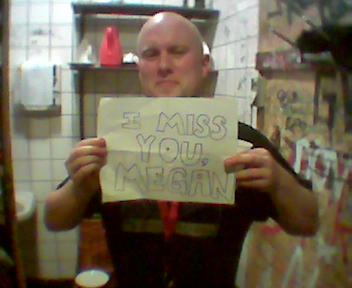 I MISS
YOU,
MEGAN